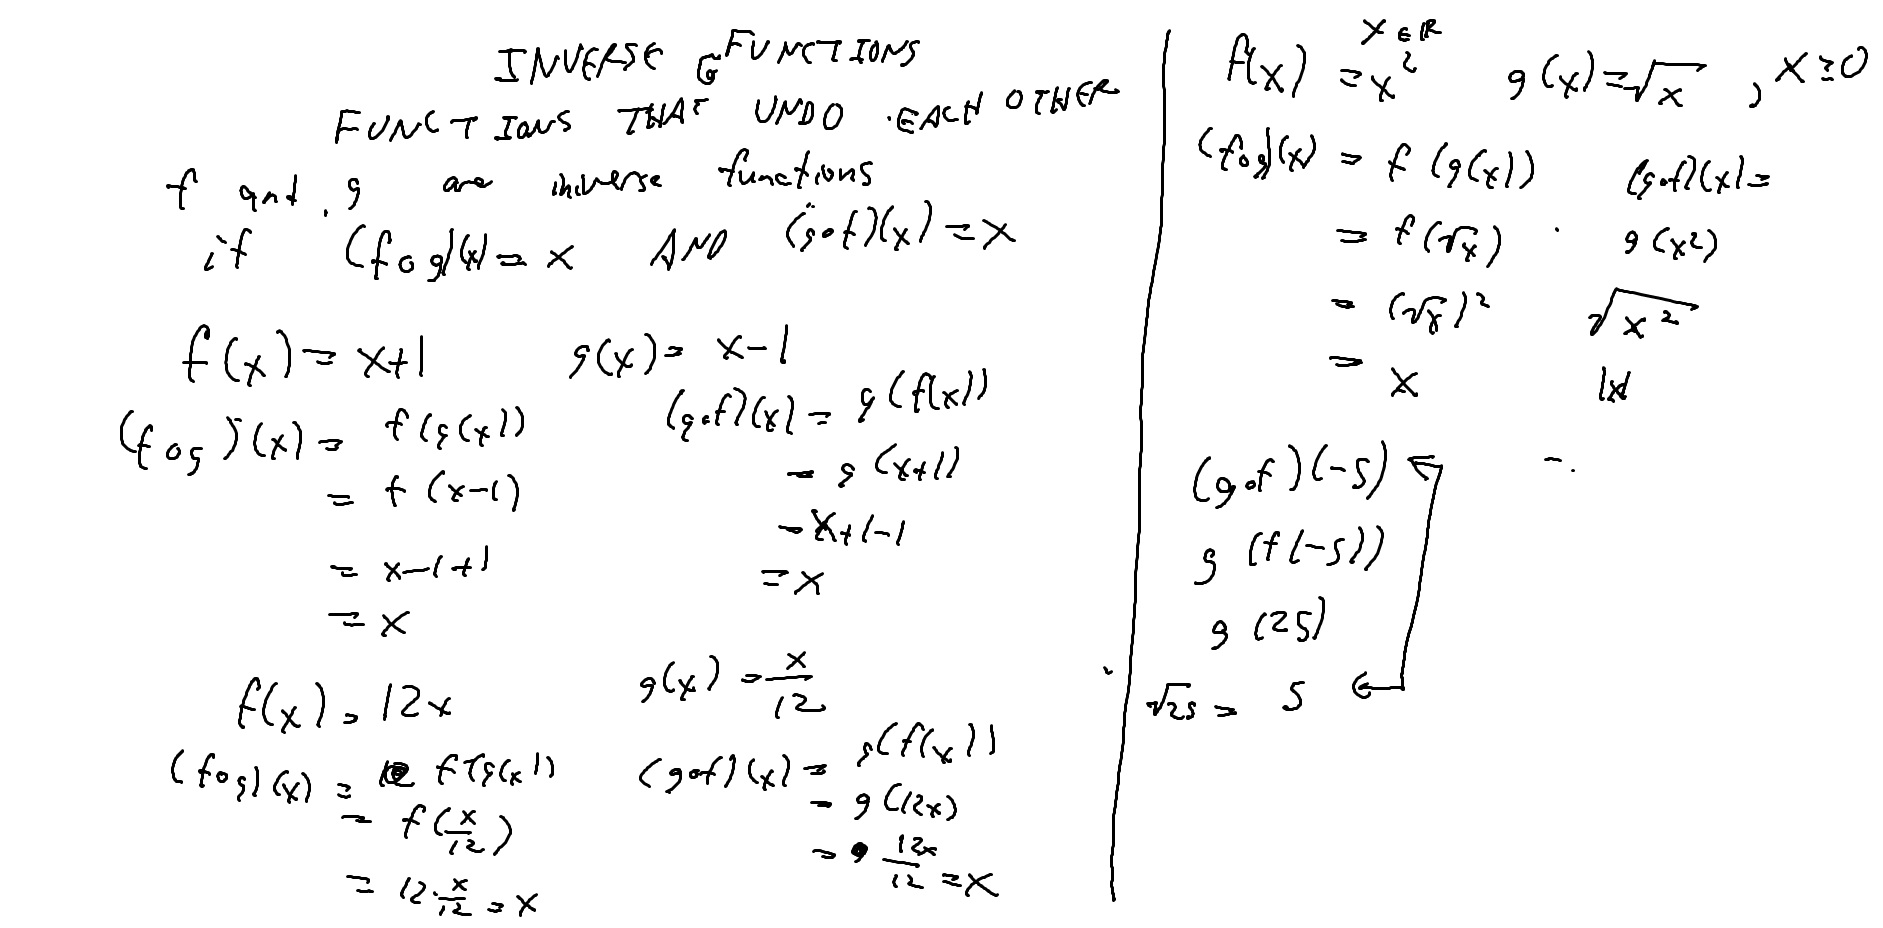 INVERSE FUNCTIONS
FUNCTIONS THAT UNDO EACH OTHER
f and g are inverse functions
if (f∘g)(x) = x AND (g∘f)(x) = x
f(x) = x+1 g(x) = x-1
(f∘g)(x) = f(g(x))
= f(x-1)
= x-1+1
= x
(g∘f)(x) = g(f(x))
= g(x+1)
= x+1-1
= x
f(x) = 12x g(x) = x/12
(f∘g)(x) = f(g(x))
= f(x/12)
= 12·x/12 = x
(g∘f)(x) = g(f(x))
= g(12x)
= 12x/12 = x
x∈ℝ
f(x) = x² g(x) = √x, x≥0
(f∘g)(x) = f(g(x))
= f(√x)
= (√x)²
= x
(g∘f)(x) =
g(x²)
√x²
|x|
(g∘f)(-5)
g(f(-5))
g(25)
√25 = 5